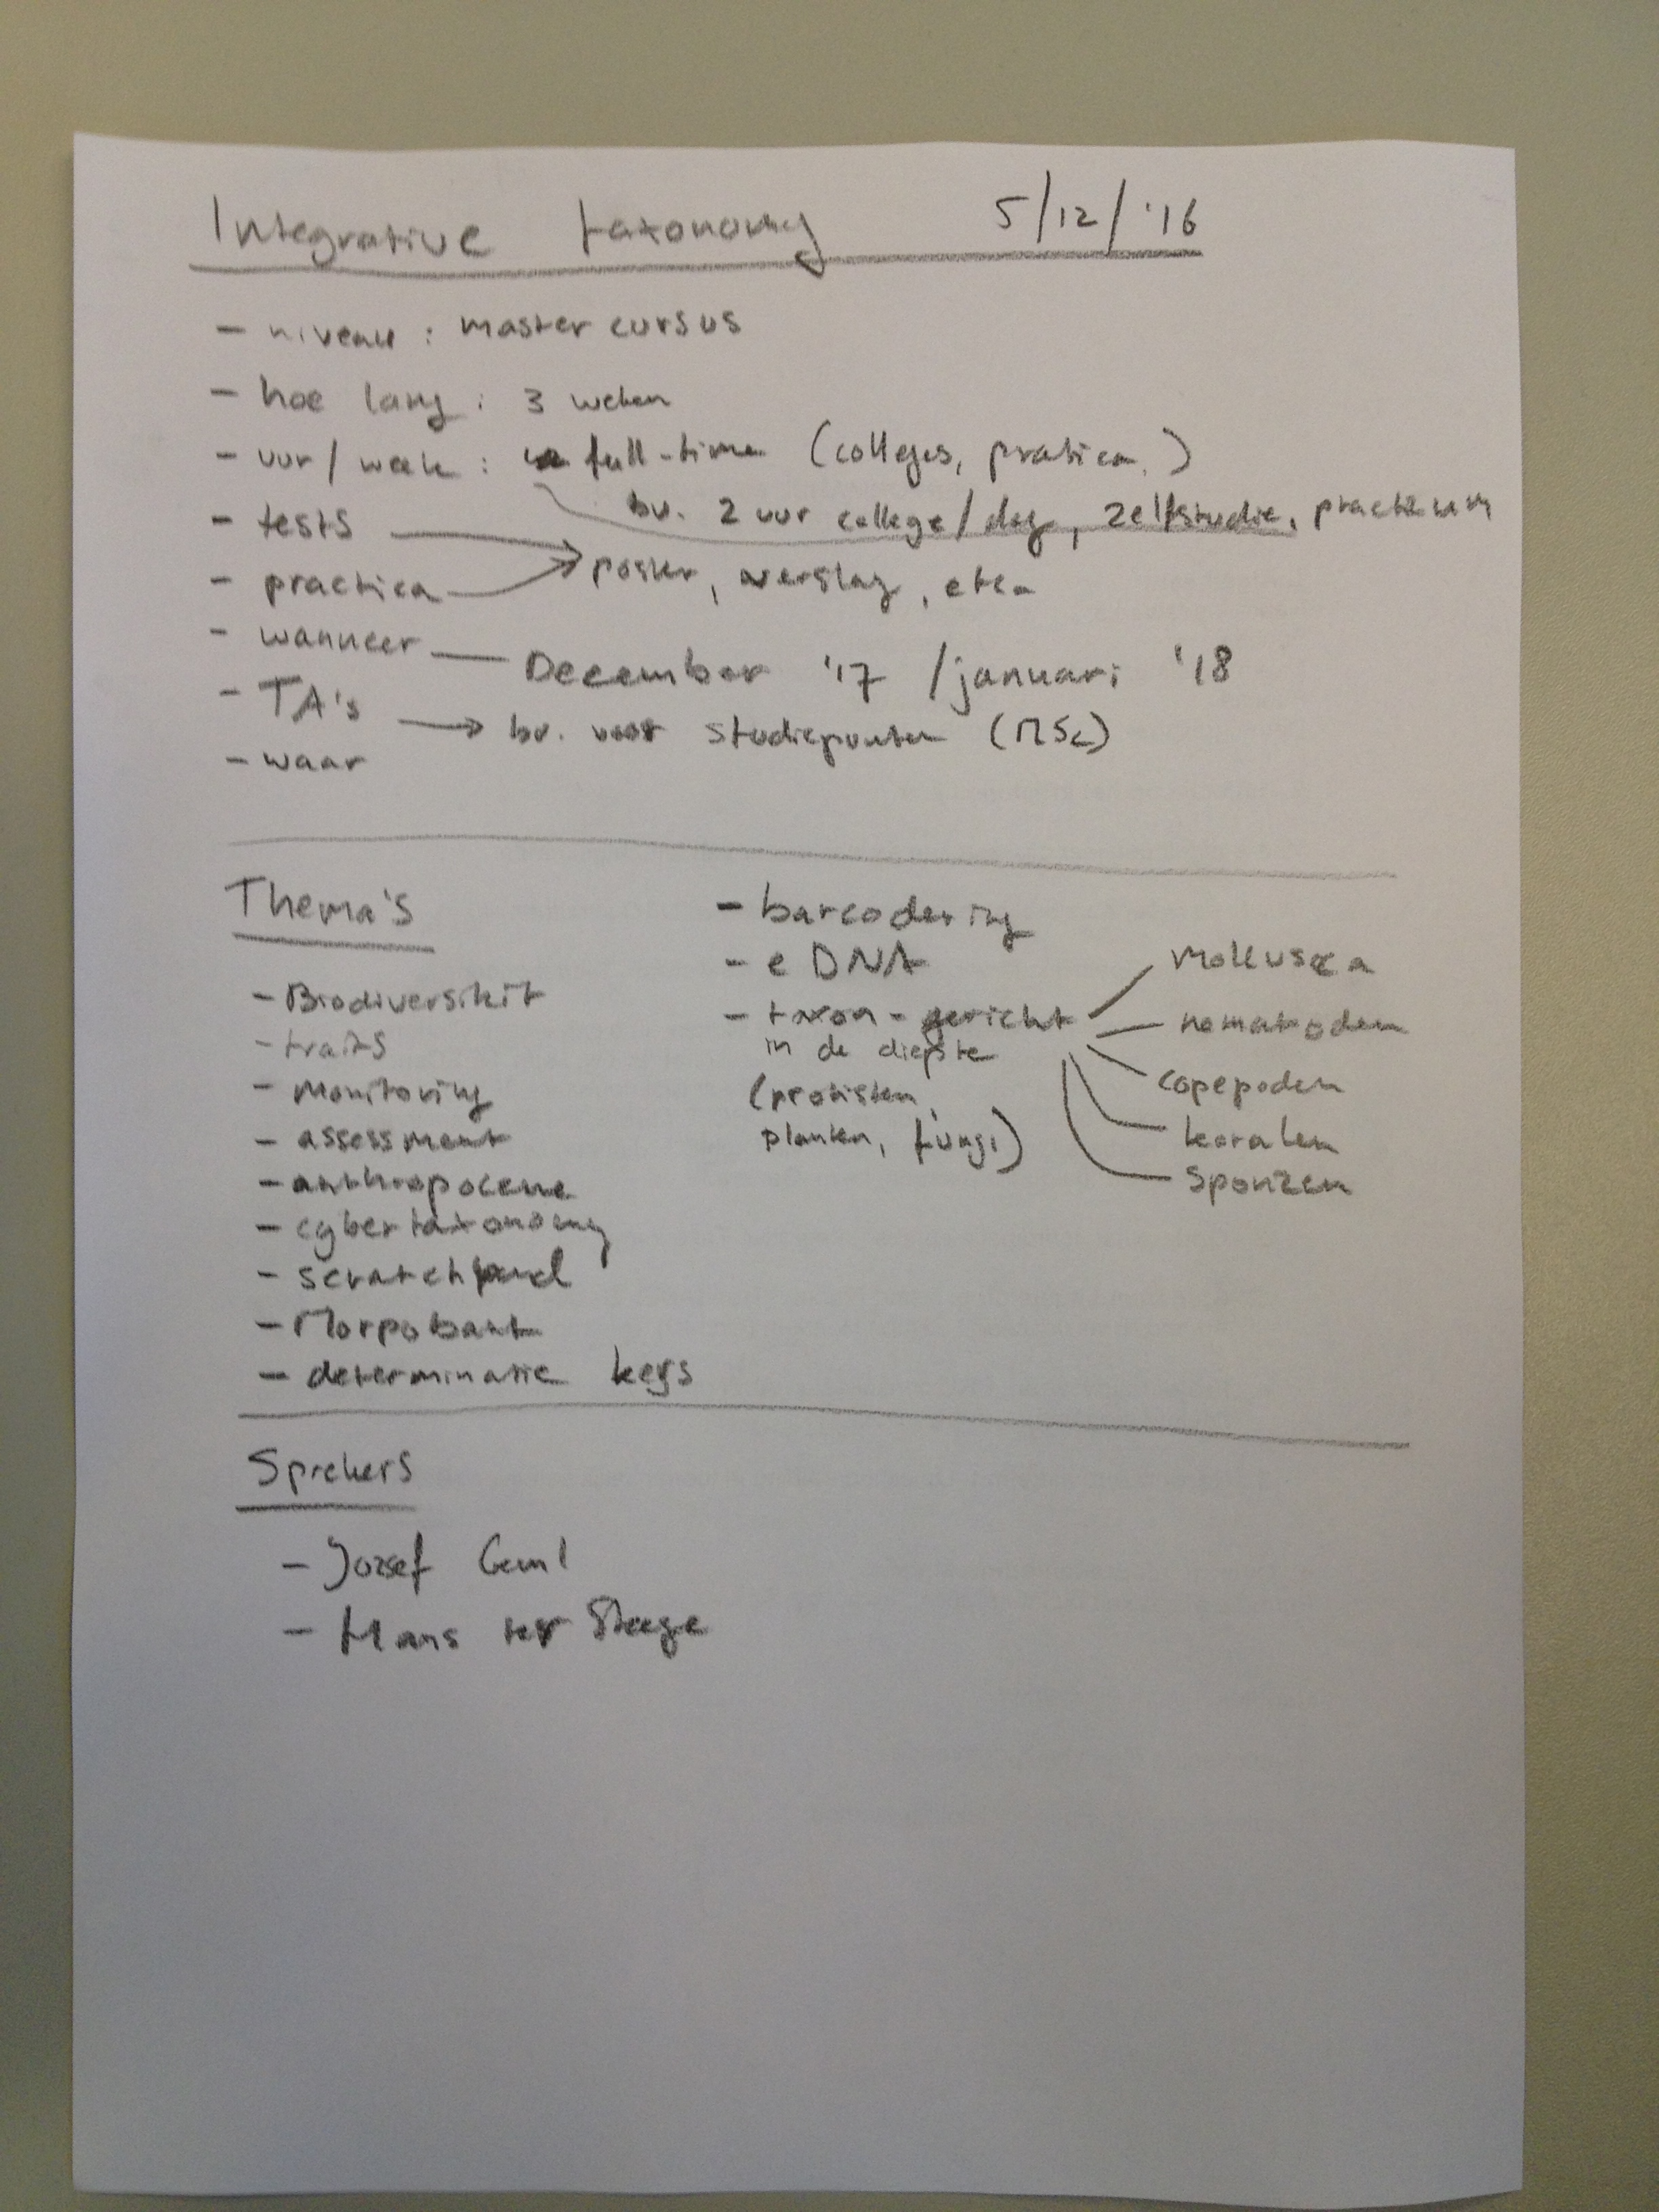 Integrative taxonomy 5/12/'16
- niveau : master cursus
- hoe lang : 3 weken
- uur/week : full-time (colleges, pratica, )
bv. 2 uur college/dag, zelfstudie, practicum
- tests
- practica
poster, verslag, etc.
- wanneer — December '17 / januari '18
- TA's → bv. voor studiepunten (MSc)
- waar
Thema's
- Biodiversiteit
- traits
- Monitoring
- assessment
- anthropocene
- cybertaxonomy
- scratchpad
- Morpobank
- determinatie keys
- barcodering
- eDNA
- taxon-gericht
in de diepste
(protisten,
planten, fungi)
Mollusca
nematoden
copepoden
koralen
Sponzen
Sprekers
- Jozsef Geml
- Hans ter Steege